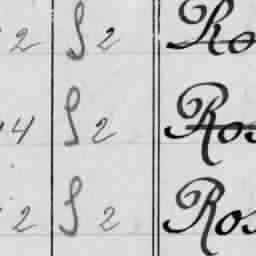 2 S 2 Ro
4 S 2 Ros
2 S 2 Ros